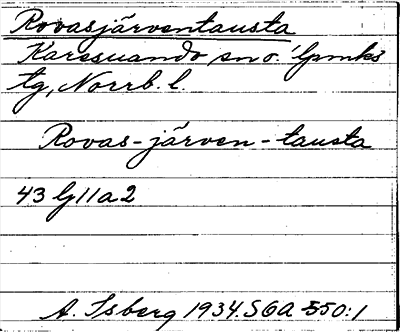 Rovasjärventausta
Karesuando sn o. lpmks
tg, Norrb. l.
Rovas-järven-tausta
43 lj 11 a 2
A. Isberg 1934. SGA 550:1